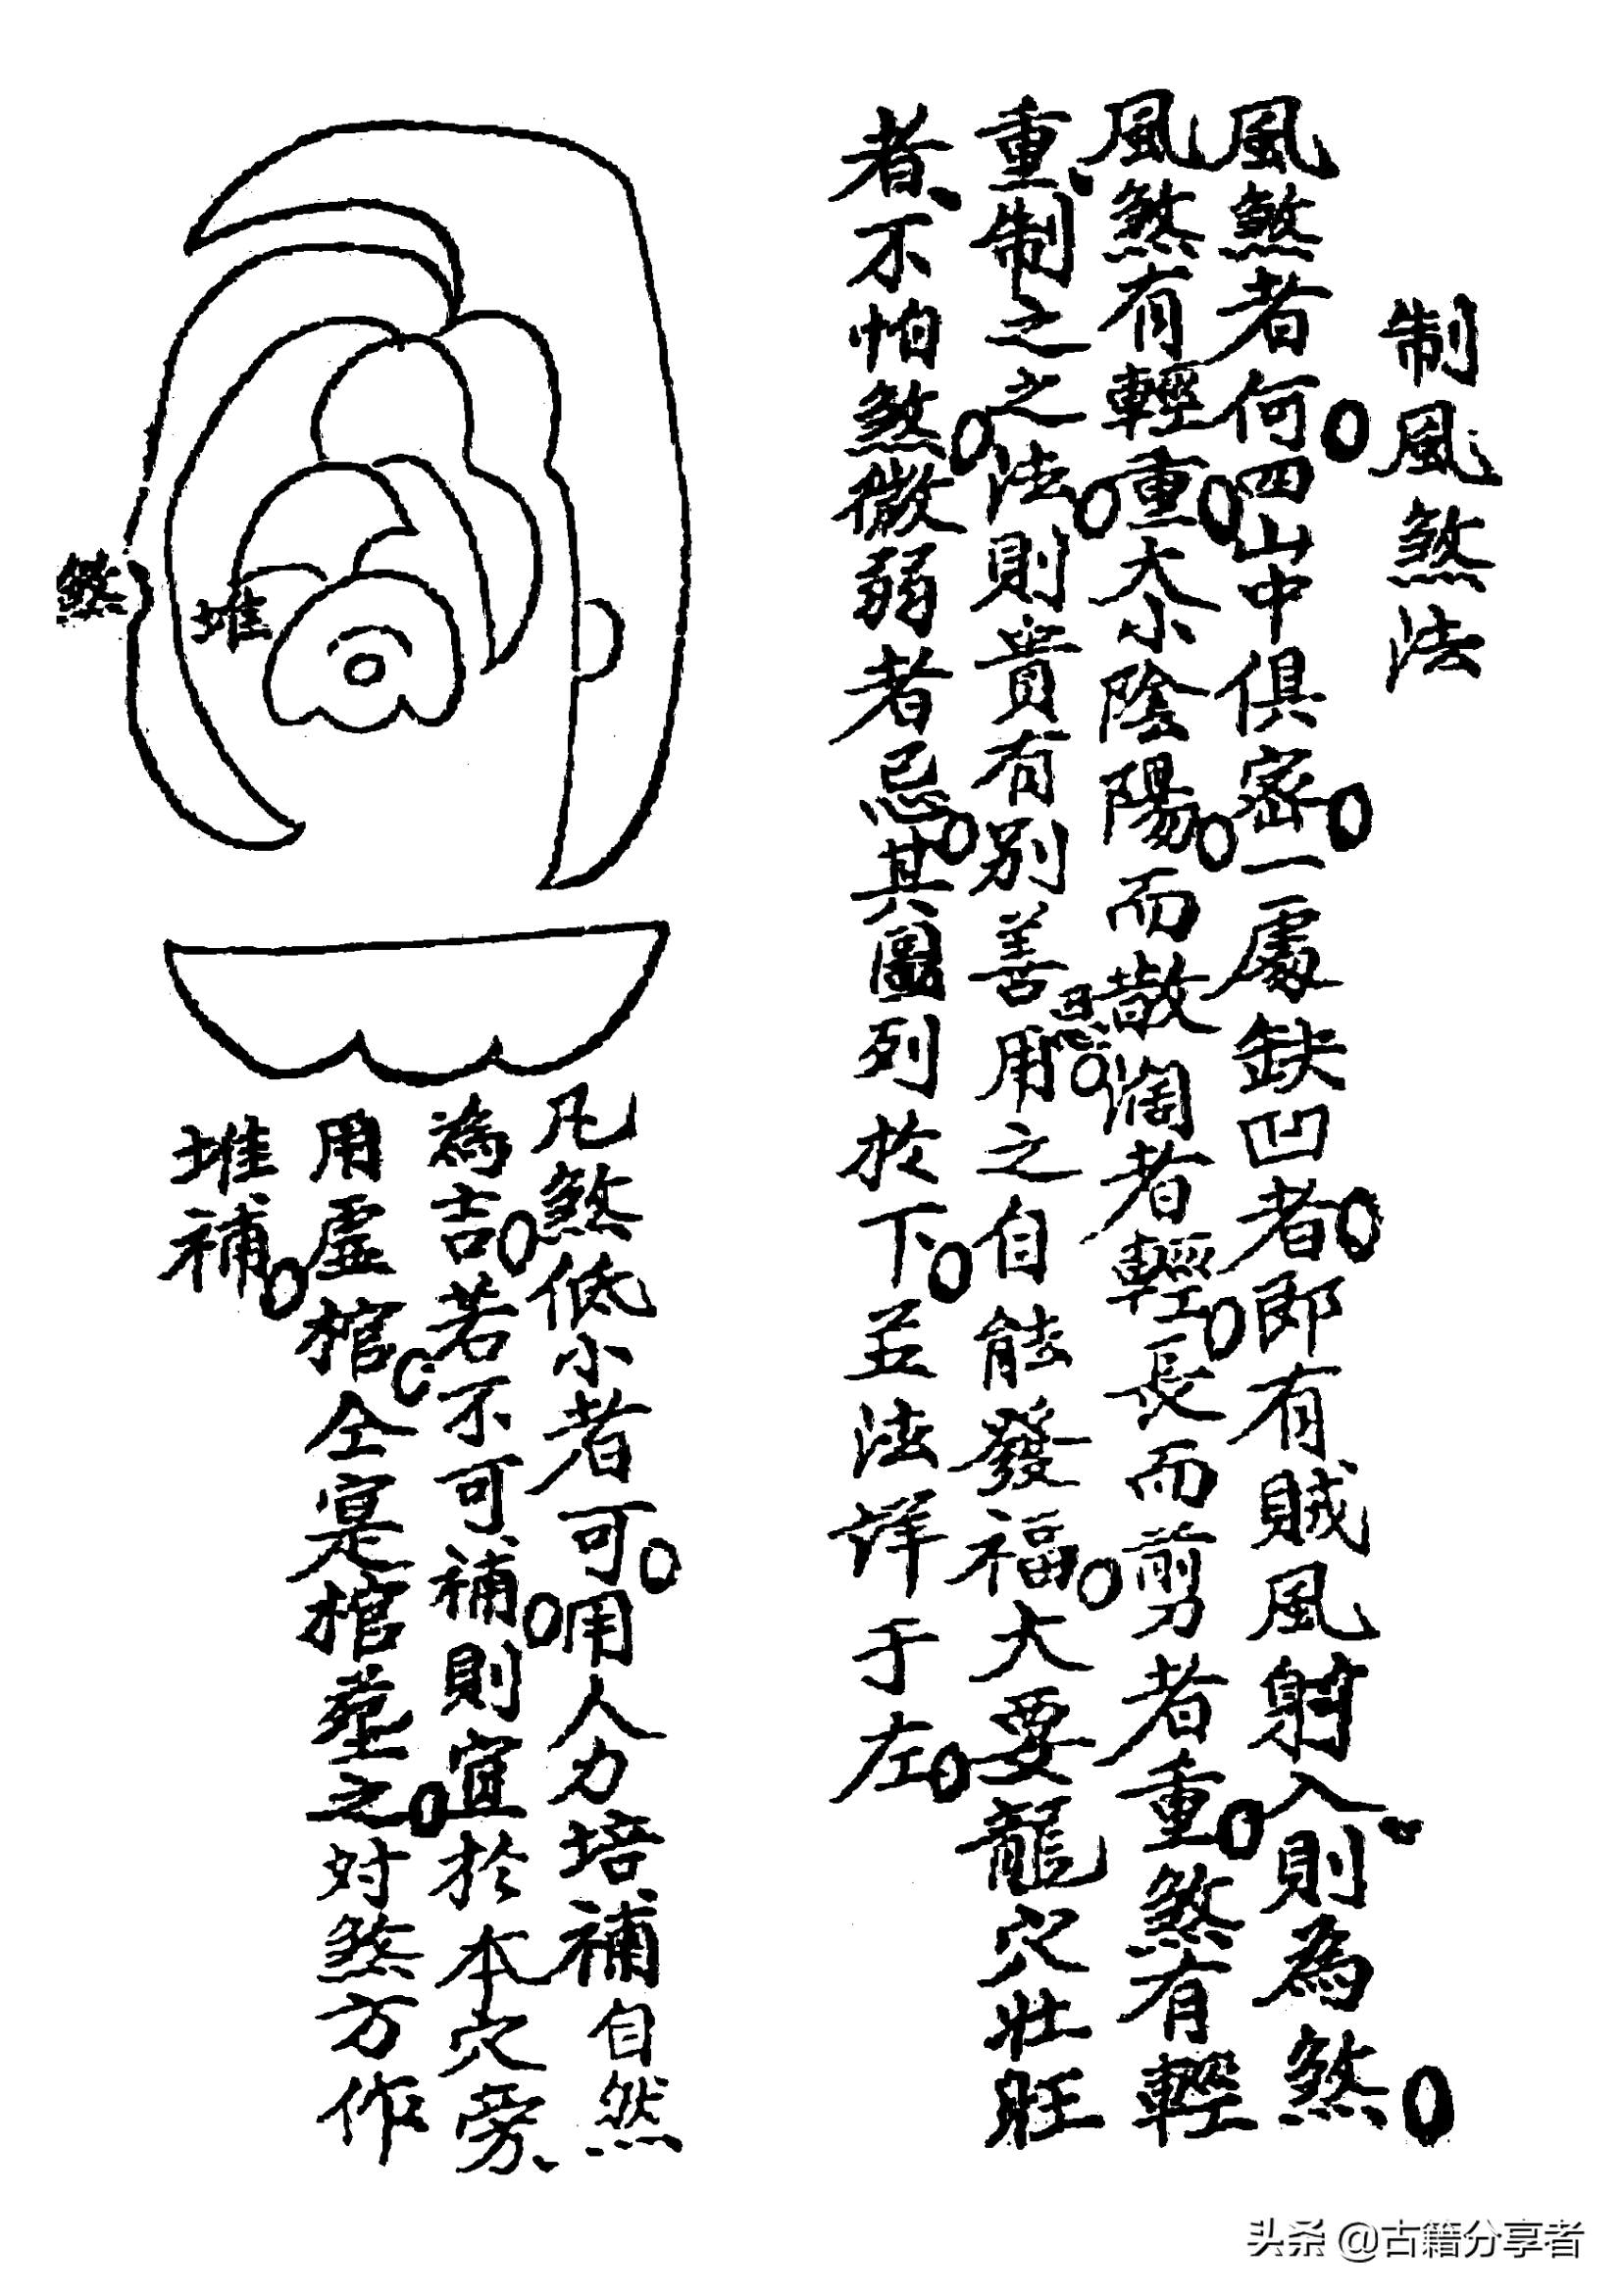 制風煞法
風煞者何四山中俱密一處缺凹者即有賊風射入則為煞
風煞有輕重大小陰陽而散濶者輕長而剪者重煞有輕
重制之之法則貴有別善用之自能發福大要龍穴壯旺
者不怕煞微弱者忌其圖列於下並法詳于左
忌
煞
堆
凡煞低小者可用人力培補自然
為吉若不可補則宜於本穴旁
用虛棺仝寔棺塟之対煞方作
堆補
头条 @古籍分享者